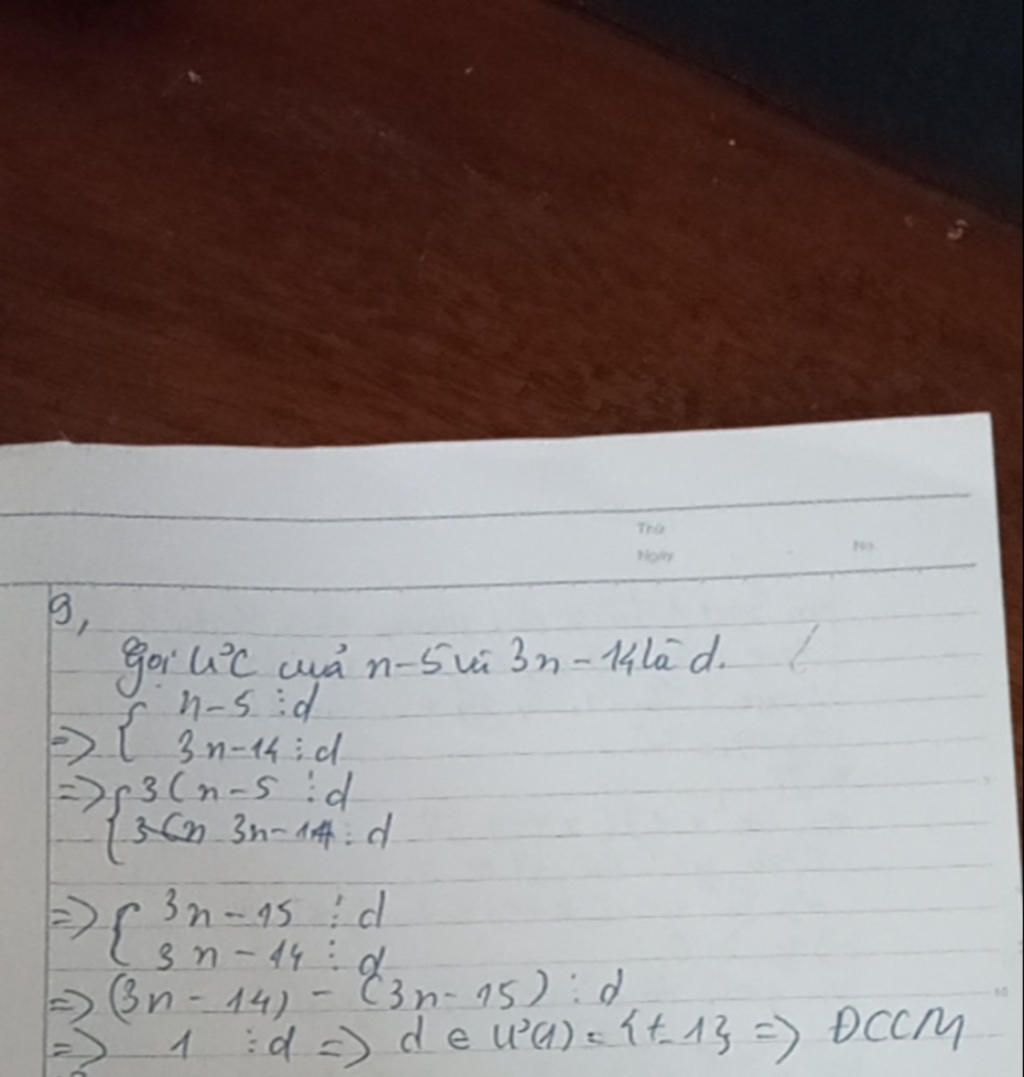 Thứ
Ngày No.
9,
Gọi ƯC cuả n-5 và 3n-14 là d.
n-5 ⋮ d
=> { 3n-14 ⋮ d
=> { 3(n-5 ⋮ d
3(n 3n-14 ⋮ d
=> { 3n-15 ⋮ d
3n-14 ⋮ d
=> (3n-14) - (3n-15) ⋮ d
=> 1 ⋮ d => d ∈ Ư(1) = {±1} => ĐCCM